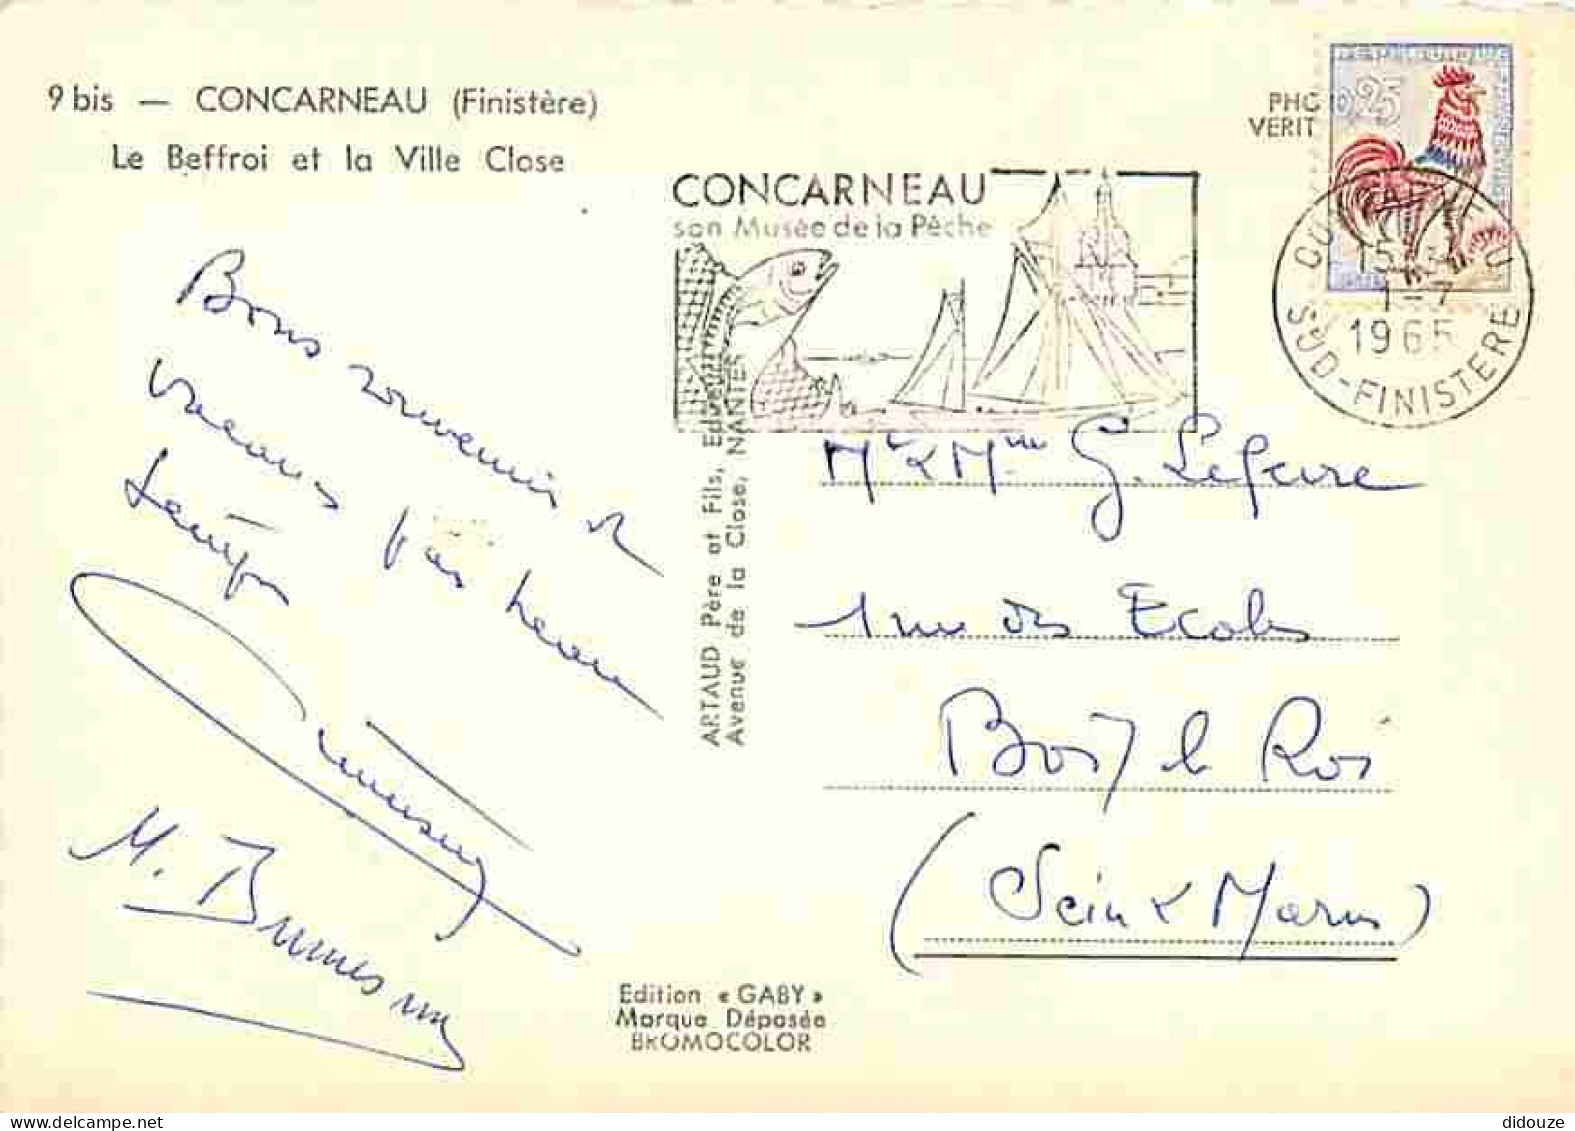 9 bis — CONCARNEAU (Finistère)
Le Beffroi et la Ville Close
PHO
VERIT
0,25
CONCARNEAU
son Musée de la Pêche
15H
1-7
1965
SUD-FINISTERE
Bons souvenirs
vacances
temps
M.
ARTAUD Père et Fils, Editeurs
Avenue de la Close, NANTES
Mr & Mme G. Lefevre
1 rue des Ecoles
Bois le Roi
(Seine & Marne)
Edition « GABY »
Marque Déposée
BROMOCOLOR
didouze